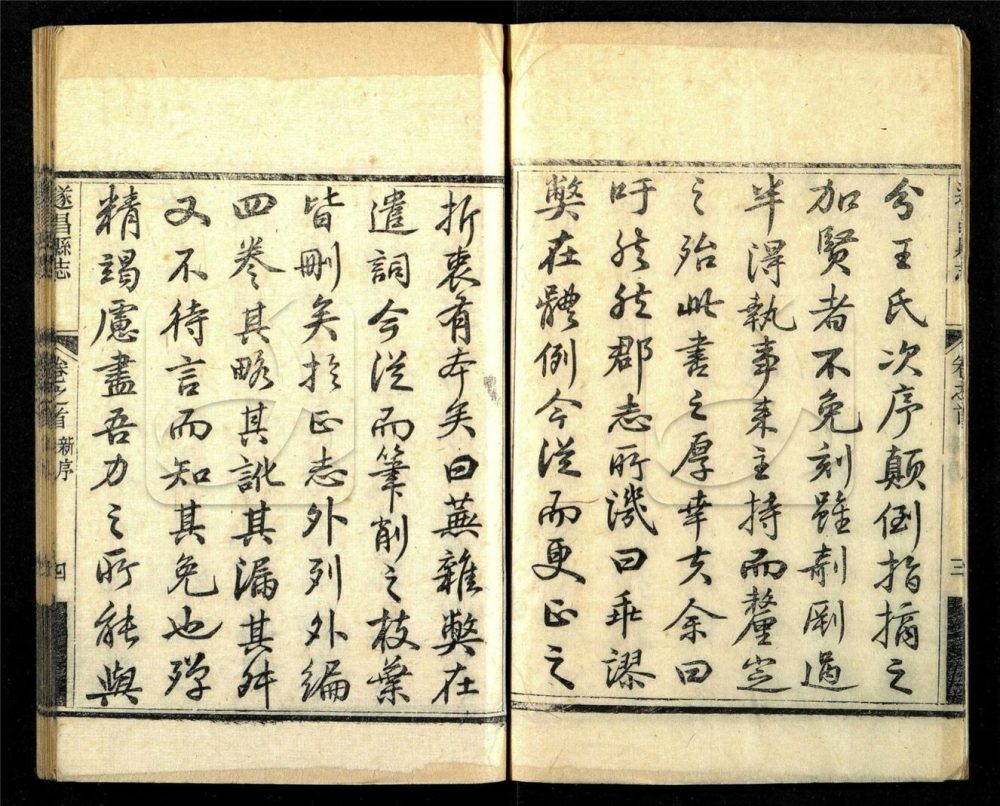 兮王氏次序顛倒指摘之
加賢者不免刻雖剞劂過
半得執事来主持而釐定
之殆此書之厚幸夫余曰
吁然然郡志所譏曰乖謬
獘在體例今從而更正之
折衷有本矣曰蕪雜獘在
遣詞今從而筆削之枝葉
皆刪矣於正志外列外編
四卷其略其訛其漏其舛
又不待言而知其免也殫
精竭慮盡吾力之所能與
遂昌縣志 卷之首 新序 四